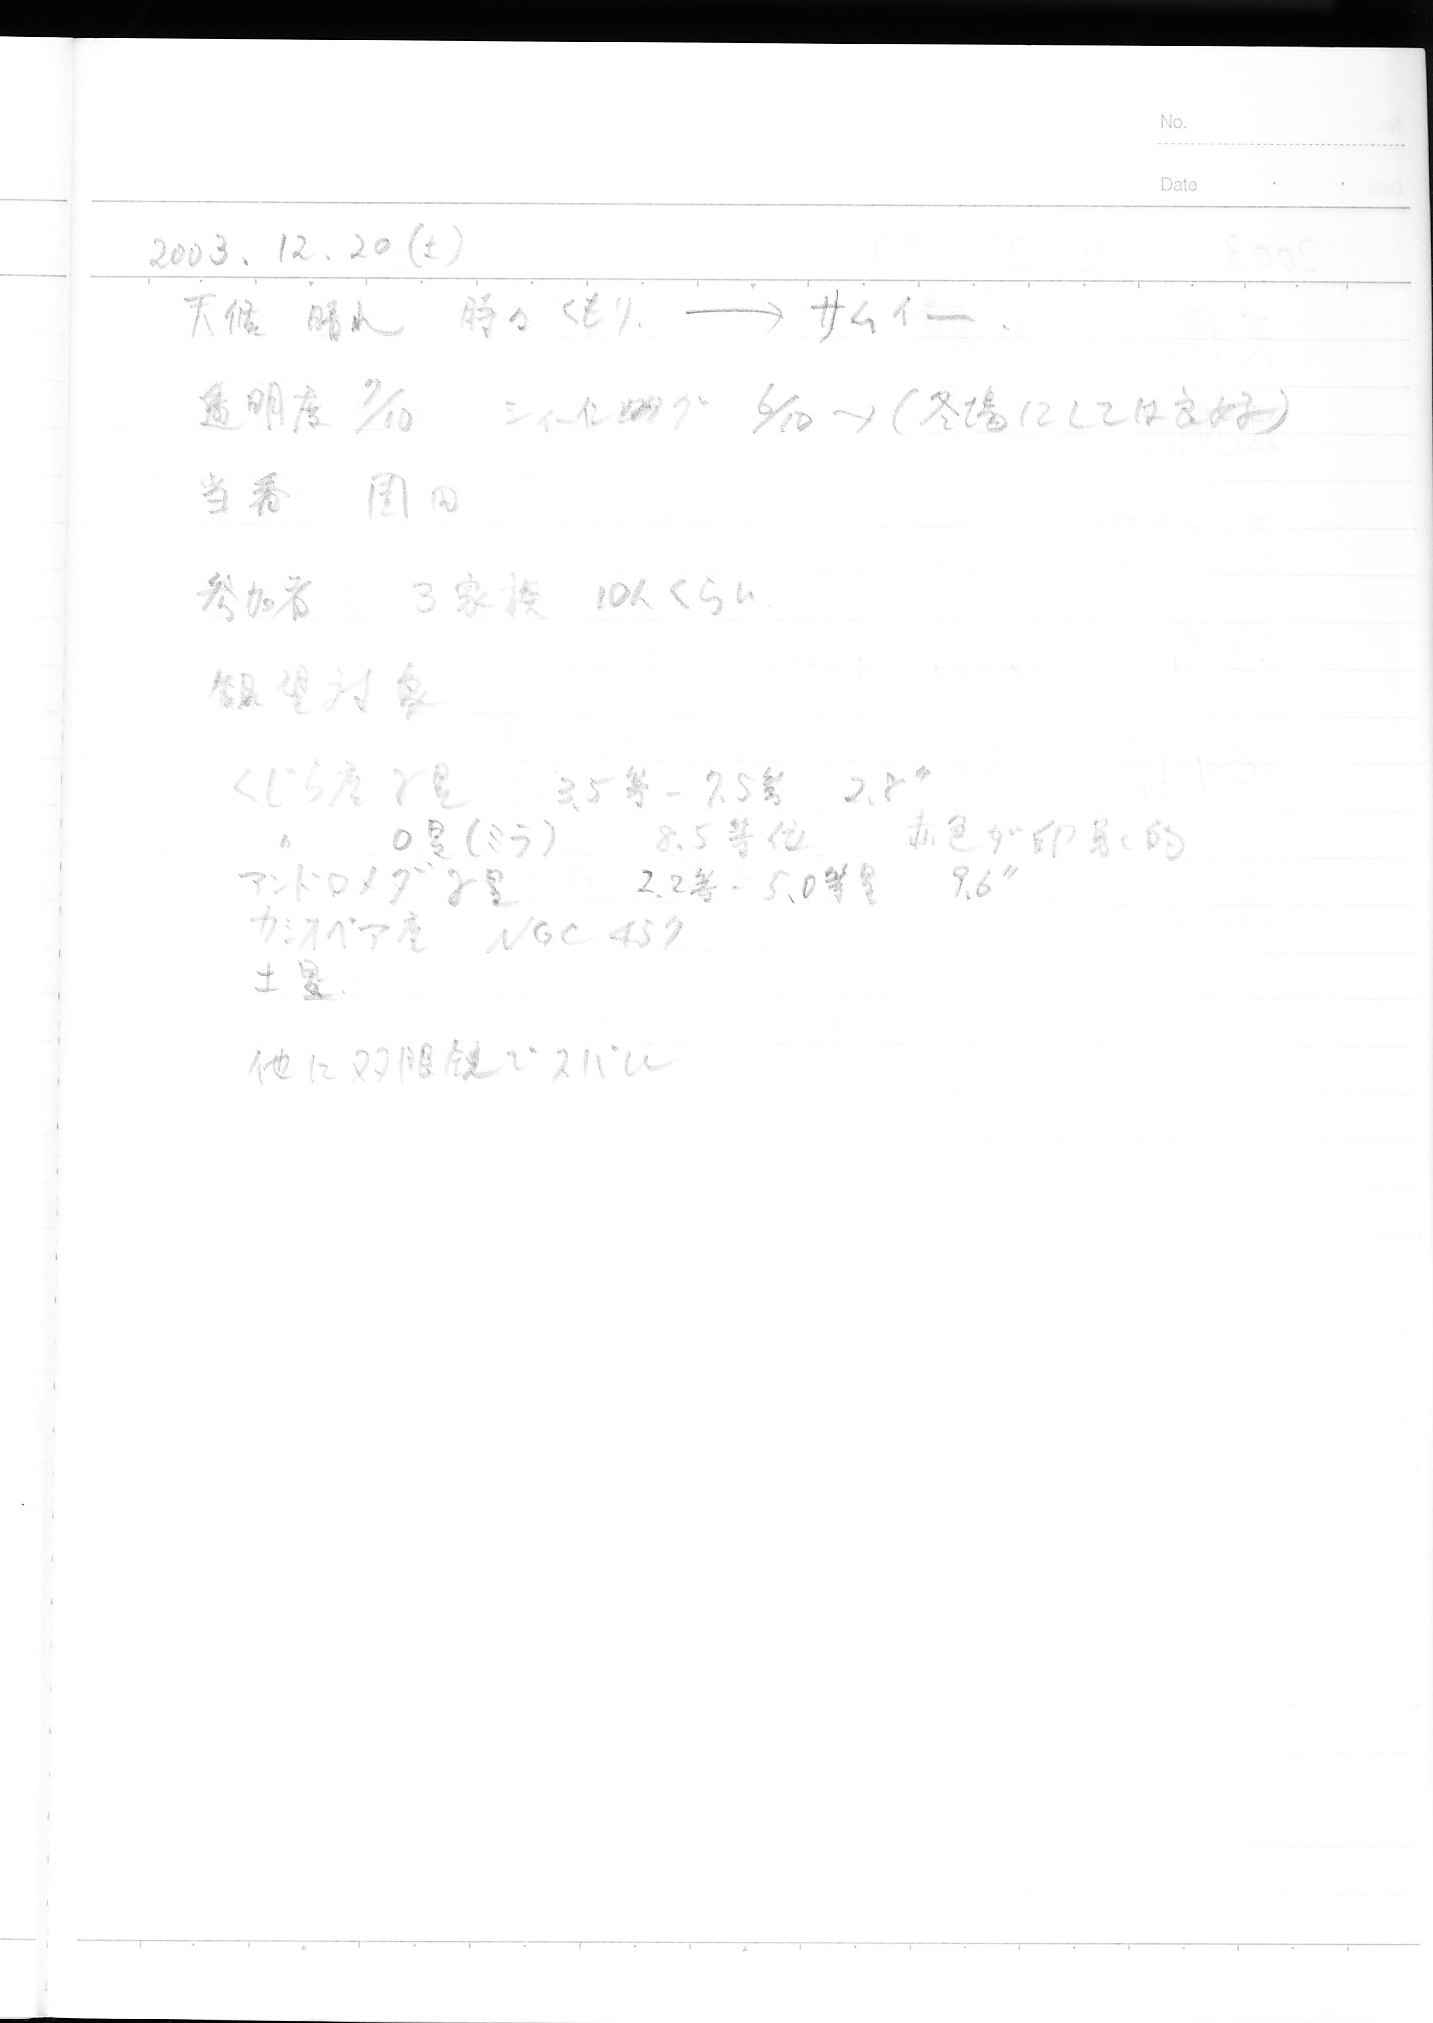 No.
Date
2003. 12. 20(土)
天候 晴れ 時々くもり. → サムイー.
透明度 7/10 シィーイング 6/10 → (冬場にしては良好)
当番 田
参加者 3家族 10人くらい
観望対象
くじら座γ星 3.5等-7.5等 2.8"
〃 ο星(ミラ) 8.5等位 赤色が印象的
アンドロメダγ星 2.2等-5.0等星 9.6"
カシオペア座 NGC 457
土星.
他に双眼鏡でスバル